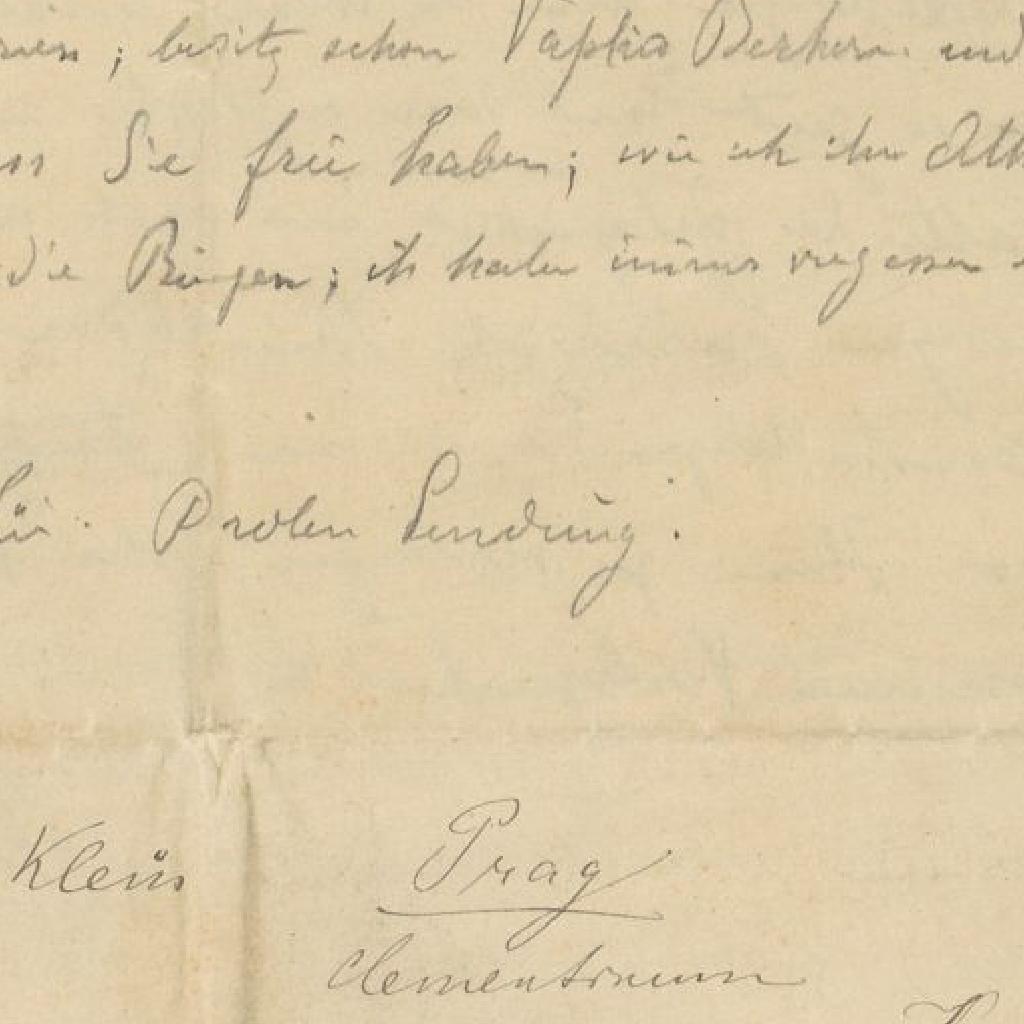 ; besitz schon Vaplia Berkern und
Sie frei haben; wie ich ihn
die Bürgen; ich habe immer vergessen
für. Proben Sendung.
Klein Prag
Clementinum